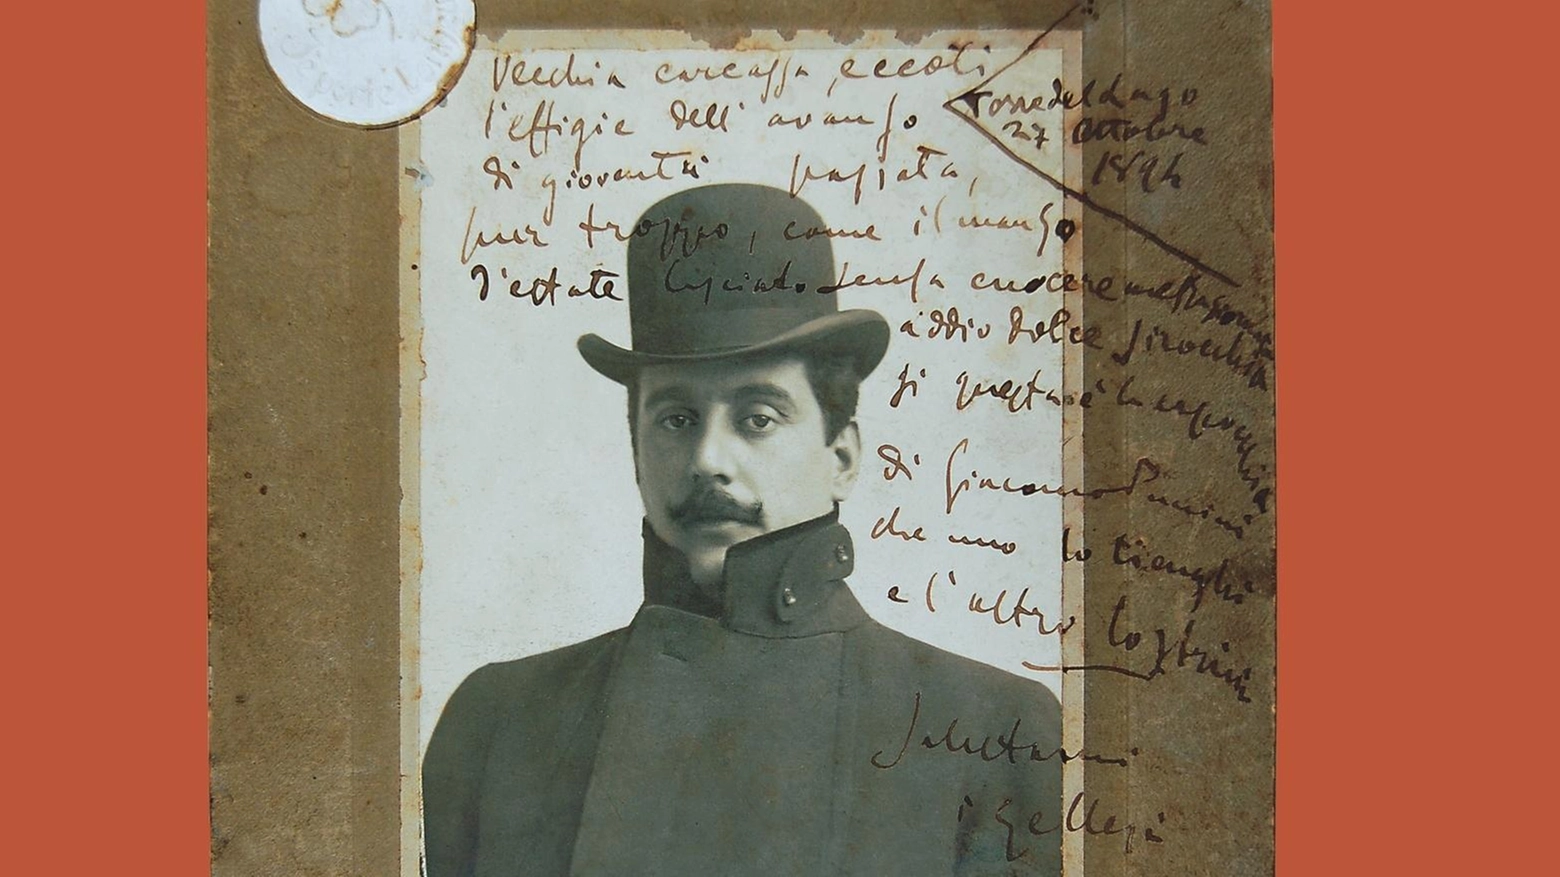 Vecchia carcassa, eccoti
l'effigie dell' avanzo
di gioventù passata,
pur troppo, come il manzo
d'estate lasciato senza cuocere
addio dolce sirocchia
di questa è la
di Giacomo Puccini
che uno lo tienghi
e l'altro lo
Salutami
i
Torre del Lago
27 Ottobre
1894